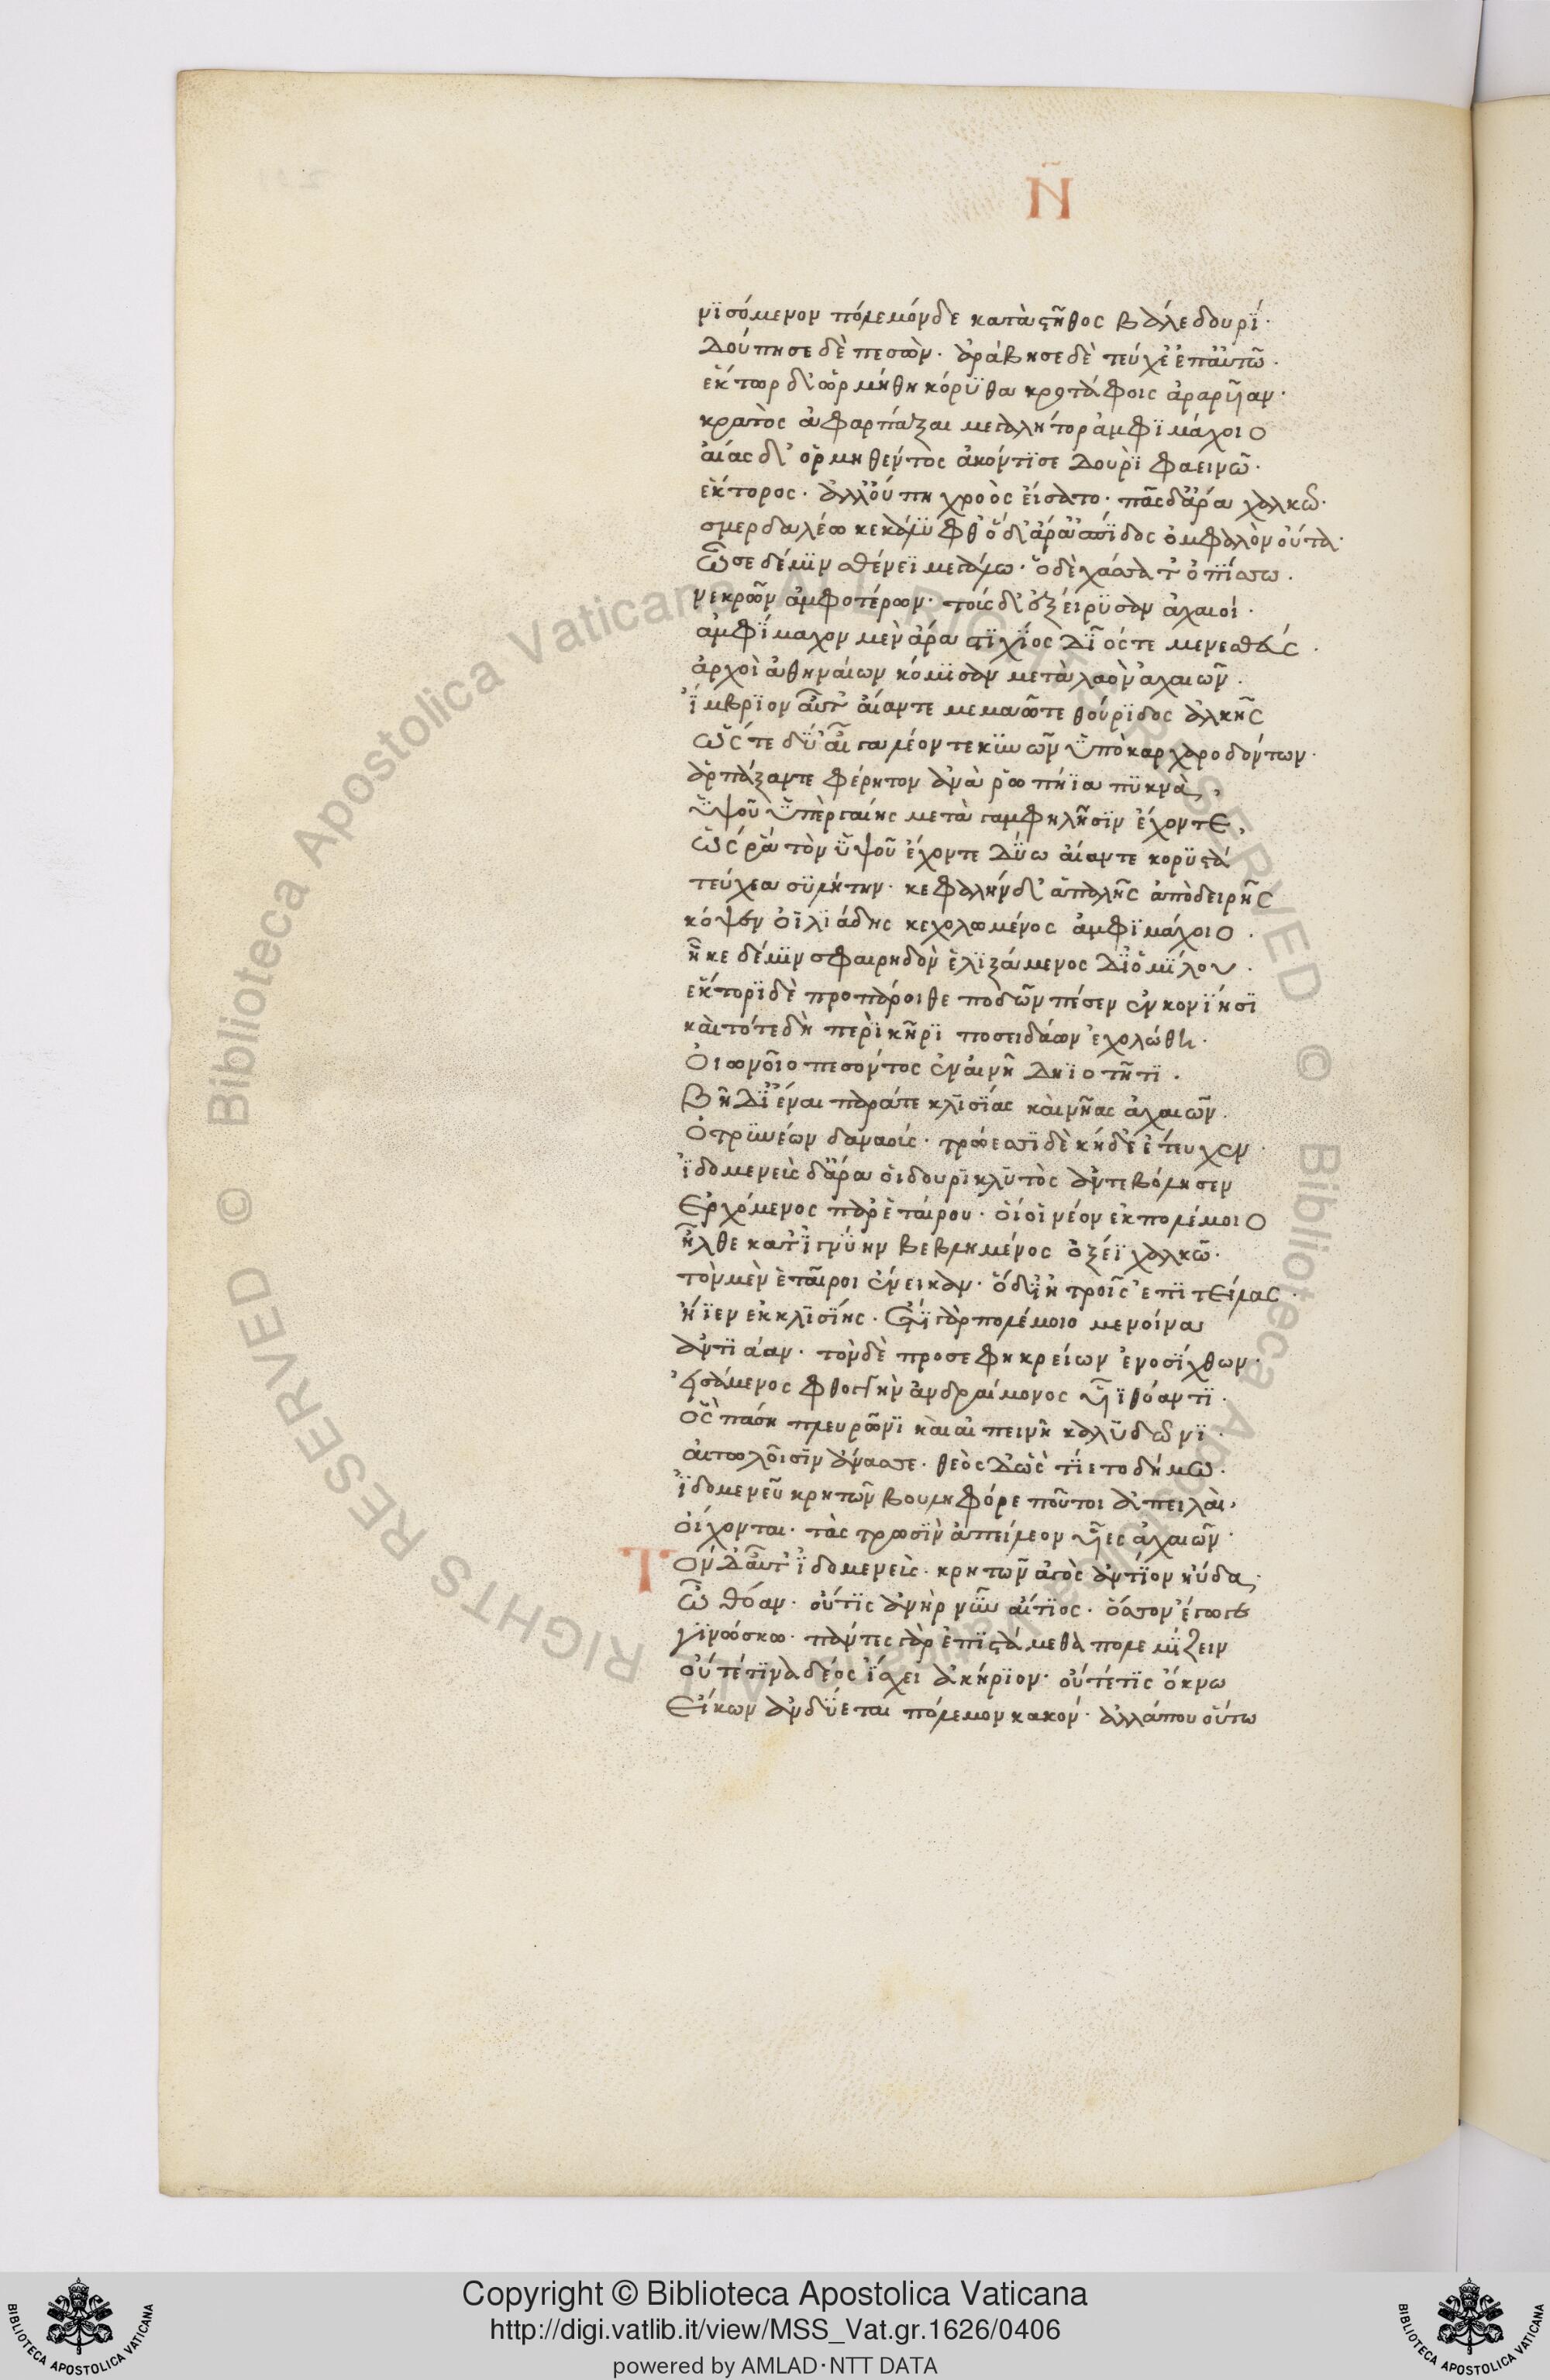 Ν
νισόμενον πόλεμόνδε κατὰ στῆθος βάλε δουρί·
Δούπησε δὲ πεσὼν· ἀράβησε δὲ τεύχε' ἐπ' ἀυτῶ·
ἕκτωρ δ' ὡρμήθη κόρυθα κροτάφοις ἀραρυῖαν·
κρατὸς ἀφαρπάξαι μεγαλήτορ ἀμφιμάχοιο
ἀίας δ' ὁρμηθέντος ἀκόντισε Δουρὶ φαεινῶ·
ἕκτορος· ἀλλ' ούπη χροὸς ἐίσατο· πᾶς δ' ἄρα χαλκῶ·
σμερδαλέω κεκάλυφθ' ὅ δ' ἄρ' ἀσπίδος ὀμφαλὸν οὖτα·
ὦσε δέ μιν σθένεϊ μεγάλω· ὅ δὲ χάσσατ' ὀπίσσω·
νεκρῶν ἀμφοτέρων· τοὺς δ' ἐξείρυσαν ἀχαιοί·
ἀμφίμαχον μὲν ἄρα στιχίος Δῖός τε μενεσθεύς·
ἀρχοὶ ἀθηναίων κόμισαν μετὰ λαὸν ἀχαιῶν·
ἴμβριον αὖτ' ἀίαντε μεμαῶτε θούριδος ἀλκῆς
ὥς τε δύ' αἶγα λέοντε κυνῶν ὑπὸ καρχαροδόντων·
ἁρπάξαντε φέρητον ἀνὰ ῥωπήϊα πυκνὰ,
ὑψοῦ ὑπὲρ γαίης μετὰ γαμφηλῆσιν ἔχοντε,
ὥς ῥα τὸν ὑψοῦ ἔχοντε Δύω ἀίαντε κορυστά
τεύχεα συλήτην· κεφαλὴν δ' ἁπαλῆς ἀπὸ δειρῆς
κόψεν ὀϊλιάδης κεχολωμένος ἀμφιμάχοιο·
ἧκε δέ μιν σφαιρηδὸν ἑλιξάμενος Δι' ὁμίλου·
ἕκτορι δὲ προπάροιθε ποδῶν πέσεν ἐν κονίησι
καὶ τότε δὴ περὶ κῆρι ποσειδάων ἐχολώθη·
Ὑιωνοῖο πεσόντος ἐν αἰνῆ Δηϊοτῆτι·
Βῆ Δ' ἰέναι παρά τε κλισίας καὶ νῆας ἀχαιῶν·
Ὀτρυνέων δαναούς· τρώεσσι δὲ κήδε' ἔτευχεν·
ἰδομενεὺς δ' ἄρα οἱ δουρικλυτὸς ἀντεβόλησεν
Ἐρχόμενος παρ' ἑταίρου· ὅ οἱ νέον ἐκ πολέμοιο
ἦλθε κατ' ἰγνύην βεβλημένος ὀξέϊ χαλκῶ·
τὸν μὲν ἑταῖροι ἔνεικαν· ὅ δ' ἰητροῖς ἐπιτείλας·
ἤϊεν ἐκ κλισίης· ἔτι γὰρ πολέμοιο μενοίνα
ἀντιάαν· τὸν δὲ προσέφη κρείων ἐνοσίχθων·
ἐισάμενος φθογγὴν ἀνδραίμονος υἷι θόαντι·
Ὃς πάση πλευρῶνι καὶ αἰπεινῆ καλυδῶνι·
ἀιτωλοῖσιν ἄνασσε· θεὸς Δ' ὣς τίετο δήμω·
ἰδομενεῦ κρητῶν βουληφόρε ποῦ τοι ἀπειλαὶ,
ὀίχονται· τὰς τρωσὶν ἀπείλεον υἷες ἀχαιῶν·
Τὸν Δ' αὖτ' ἰδομενεὺς· κρητῶν ἀγὸς ἀντίον ηὔδα·
Ὦ θόαν· οὔτις ἀνὴρ νῦν αἴτιος· ὅσσον ἔγωγε
γινώσκω· πάντες γὰρ ἐπιστάμεθα πολεμίζειν
οὔτέ τινα δέος ἴσχει ἀκήριον· οὔτέ τις ὄκνω
Ἐίκων ἀνδύεται πόλεμον κακόν· ἀλλά που οὕτω
Copyright © Biblioteca Apostolica Vaticana
http://digi.vatlib.it/view/MSS_Vat.gr.1626/0406
powered by AMLAD·NTT DATA